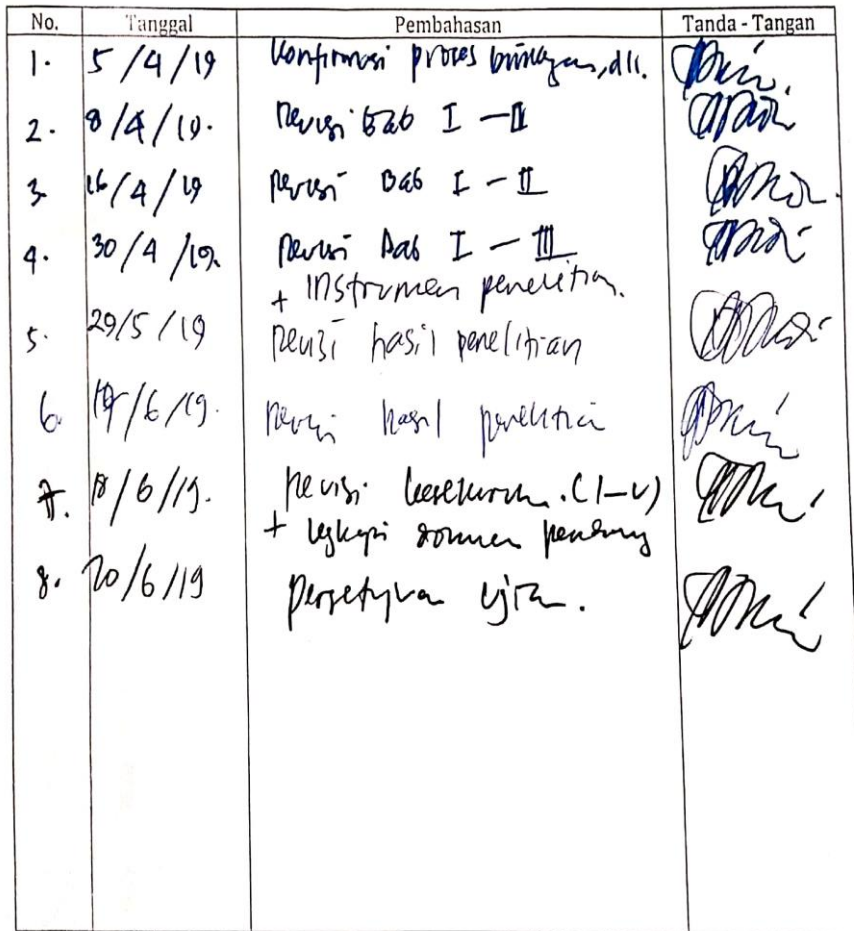 No. Tanggal Pembahasan Tanda - Tangan
1. 5/4/19 Konfirmasi proses bimbingan, dll.
2. 8/4/19. Revisi Bab I - II
3. 16/4/19 Revisi Bab I - II
4. 30/4/19. Revisi Bab I - III
+ Instrumen penelitian.
5. 29/5/19 Revisi hasil penelitian
6. /6/19. Revisi hasil penelitian
7. 18/6/19. Revisi keseluruhan. (I-V)
+ lengkapi dokumen pendukung
8. 20/6/19 Persetujuan Ujian.